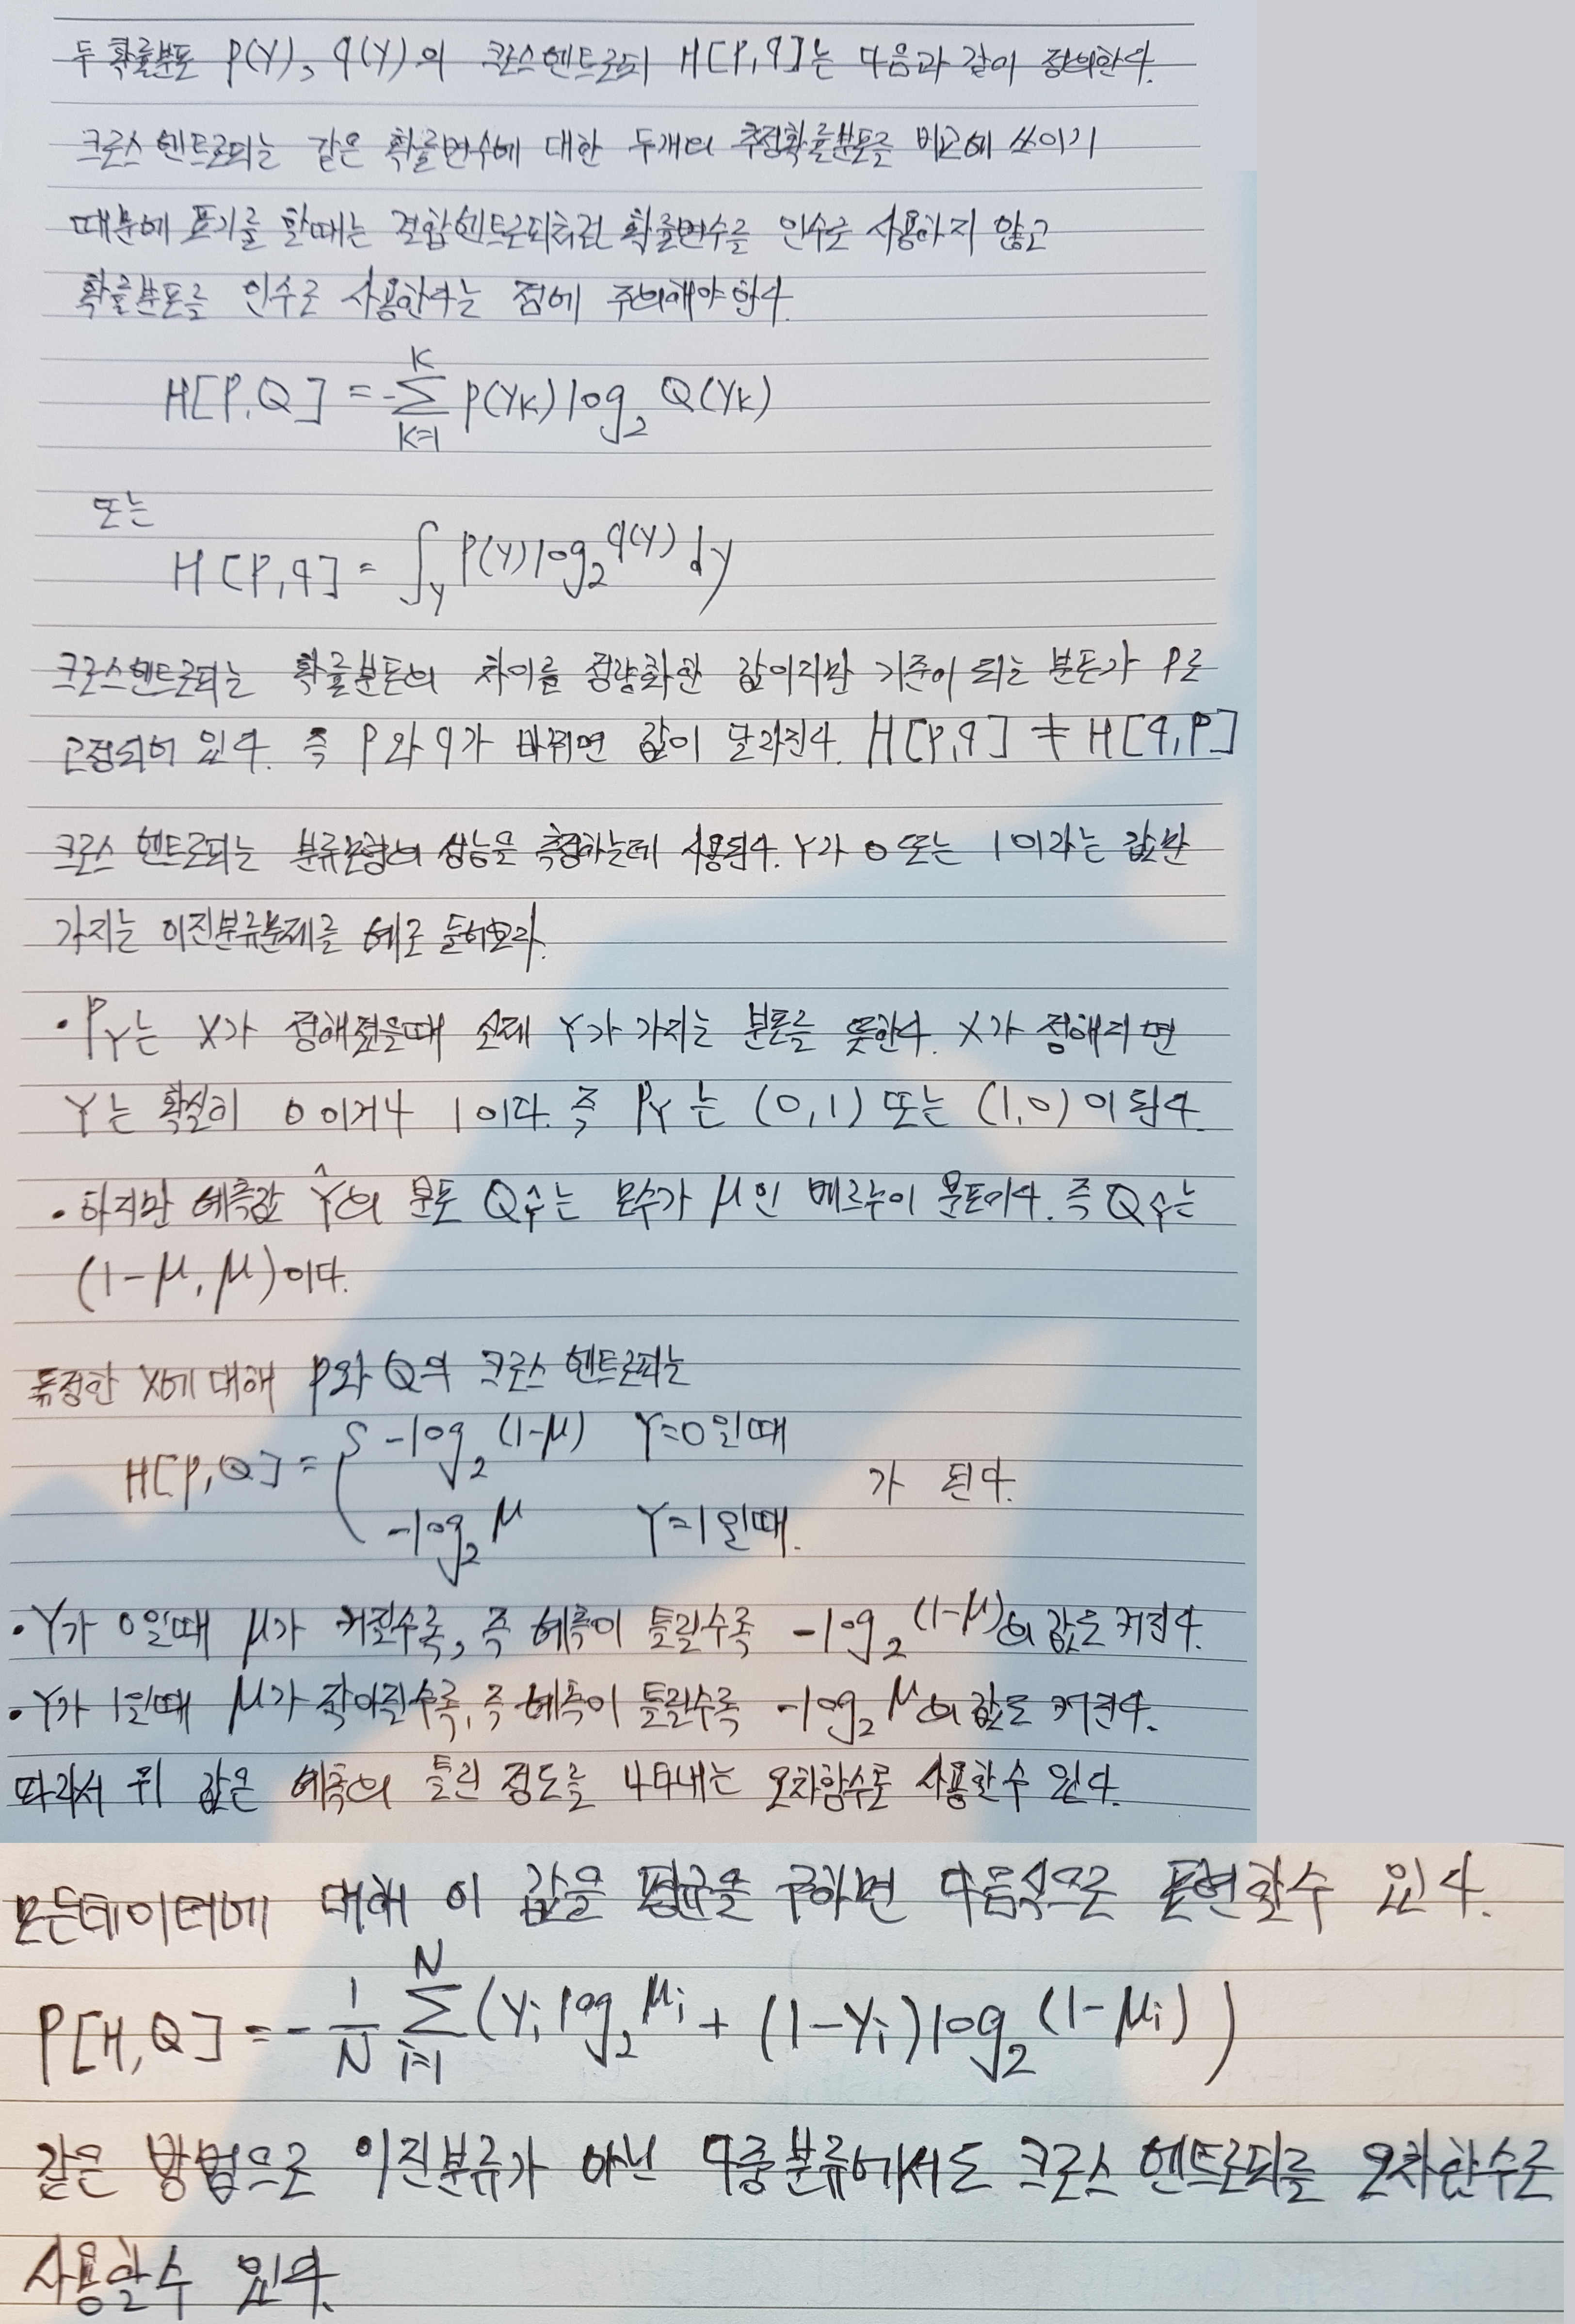 두 확률분포 p(Y), q(Y)의 크로스엔트로피 H[P,q]는 다음과 같이 정의한다.
크로스 엔트로피는 같은 확률변수에 대한 두개의 추정확률분포를 비교에 쓰이기
때문에 표기를 할때는 결합엔트로피처럼 확률변수를 인수로 사용하지 않고
확률분포를 인수로 사용한다는 점에 주의해야한다.
H[P,Q] = -∑_{k=1}^{K} p(yk) log₂ Q(yk)
또는
H[P,q] = ∫_y P(y) log₂ q(y) dy
크로스엔트로피는 확률분포의 차이를 정량화한 값이지만 기준이 되는 분포가 P로
고정되어 있다. 즉 P와 q가 바뀌면 값이 달라진다. H[p,q] ≠ H[q,P]
크로스 엔트로피는 분류모형의 성능을 측정하는데 사용된다. Y가 0 또는 1이라는 값만
가지는 이진분류문제를 예로 들어보라.
• P_Y는 X가 정해졌을때 실제 Y가 가지는 분포를 뜻한다. X가 정해지면
Y는 확실히 0이거나 1이다. 즉 P_Y는 (0,1) 또는 (1,0)이 된다.
• 하지만 예측값 Ŷ의 분포 Q_Ŷ는 모수가 μ인 베르누이 분포이다. 즉 Q_Ŷ는
(1-μ, μ)이다.
특정한 X에 대해 P와 Q의 크로스 엔트로피는
H[P,Q] = { -log₂(1-μ) Y=0일때
-log₂ μ Y=1일때. 가 된다.
• Y가 0일때 μ가 커질수록, 즉 예측이 틀릴수록 -log₂(1-μ)의 값은 커진다.
• Y가 1일때 μ가 작아질수록, 즉 예측이 틀릴수록 -log₂ μ의 값도 커진다.
따라서 위 값은 예측의 틀린 정도를 나타내는 오차함수로 사용할수 있다.
모든데이터에 대해 이 값을 평균을 구하면 다음식으로 표현할수 있다.
P[H,Q] = -1/N ∑_{i=1}^{N} (yᵢ log₂ μᵢ + (1-yᵢ) log₂ (1-μᵢ))
같은 방법으로 이진분류가 아닌 다중분류에서도 크로스 엔트로피를 오차함수로
사용할수 있다.